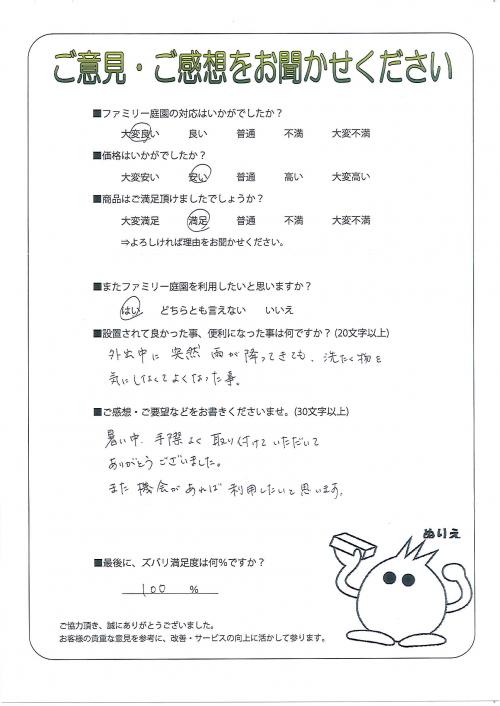 ご意見・ご感想をお聞かせください
■ファミリー庭園の対応はいかがでしたか？
大変良い 良い 普通 不満 大変不満
■価格はいかがでしたか？
大変安い 安い 普通 高い 大変高い
■商品はご満足頂けましたでしょうか？
大変満足 満足 普通 不満 大変不満
⇒よろしければ理由をお聞かせください。
■またファミリー庭園を利用したいと思いますか？
はい どちらとも言えない いいえ
■設置されて良かった事、便利になった事は何ですか？(20文字以上)
外出中に突然雨が降ってきても、洗たく物を
気にしなくてよくなった事。
■ご感想・ご要望などをお書きくださいませ。(30文字以上)
暑い中、手際よく取り付けていただいて
ありがとうございました。
また機会があれば利用したいと思います。
ぬりえ
■最後に、ズバリ満足度は何％ですか？
100 ％
ご協力頂き、誠にありがとうございました。
お客様の貴重な意見を参考に、改善・サービスの向上に活かして参ります。